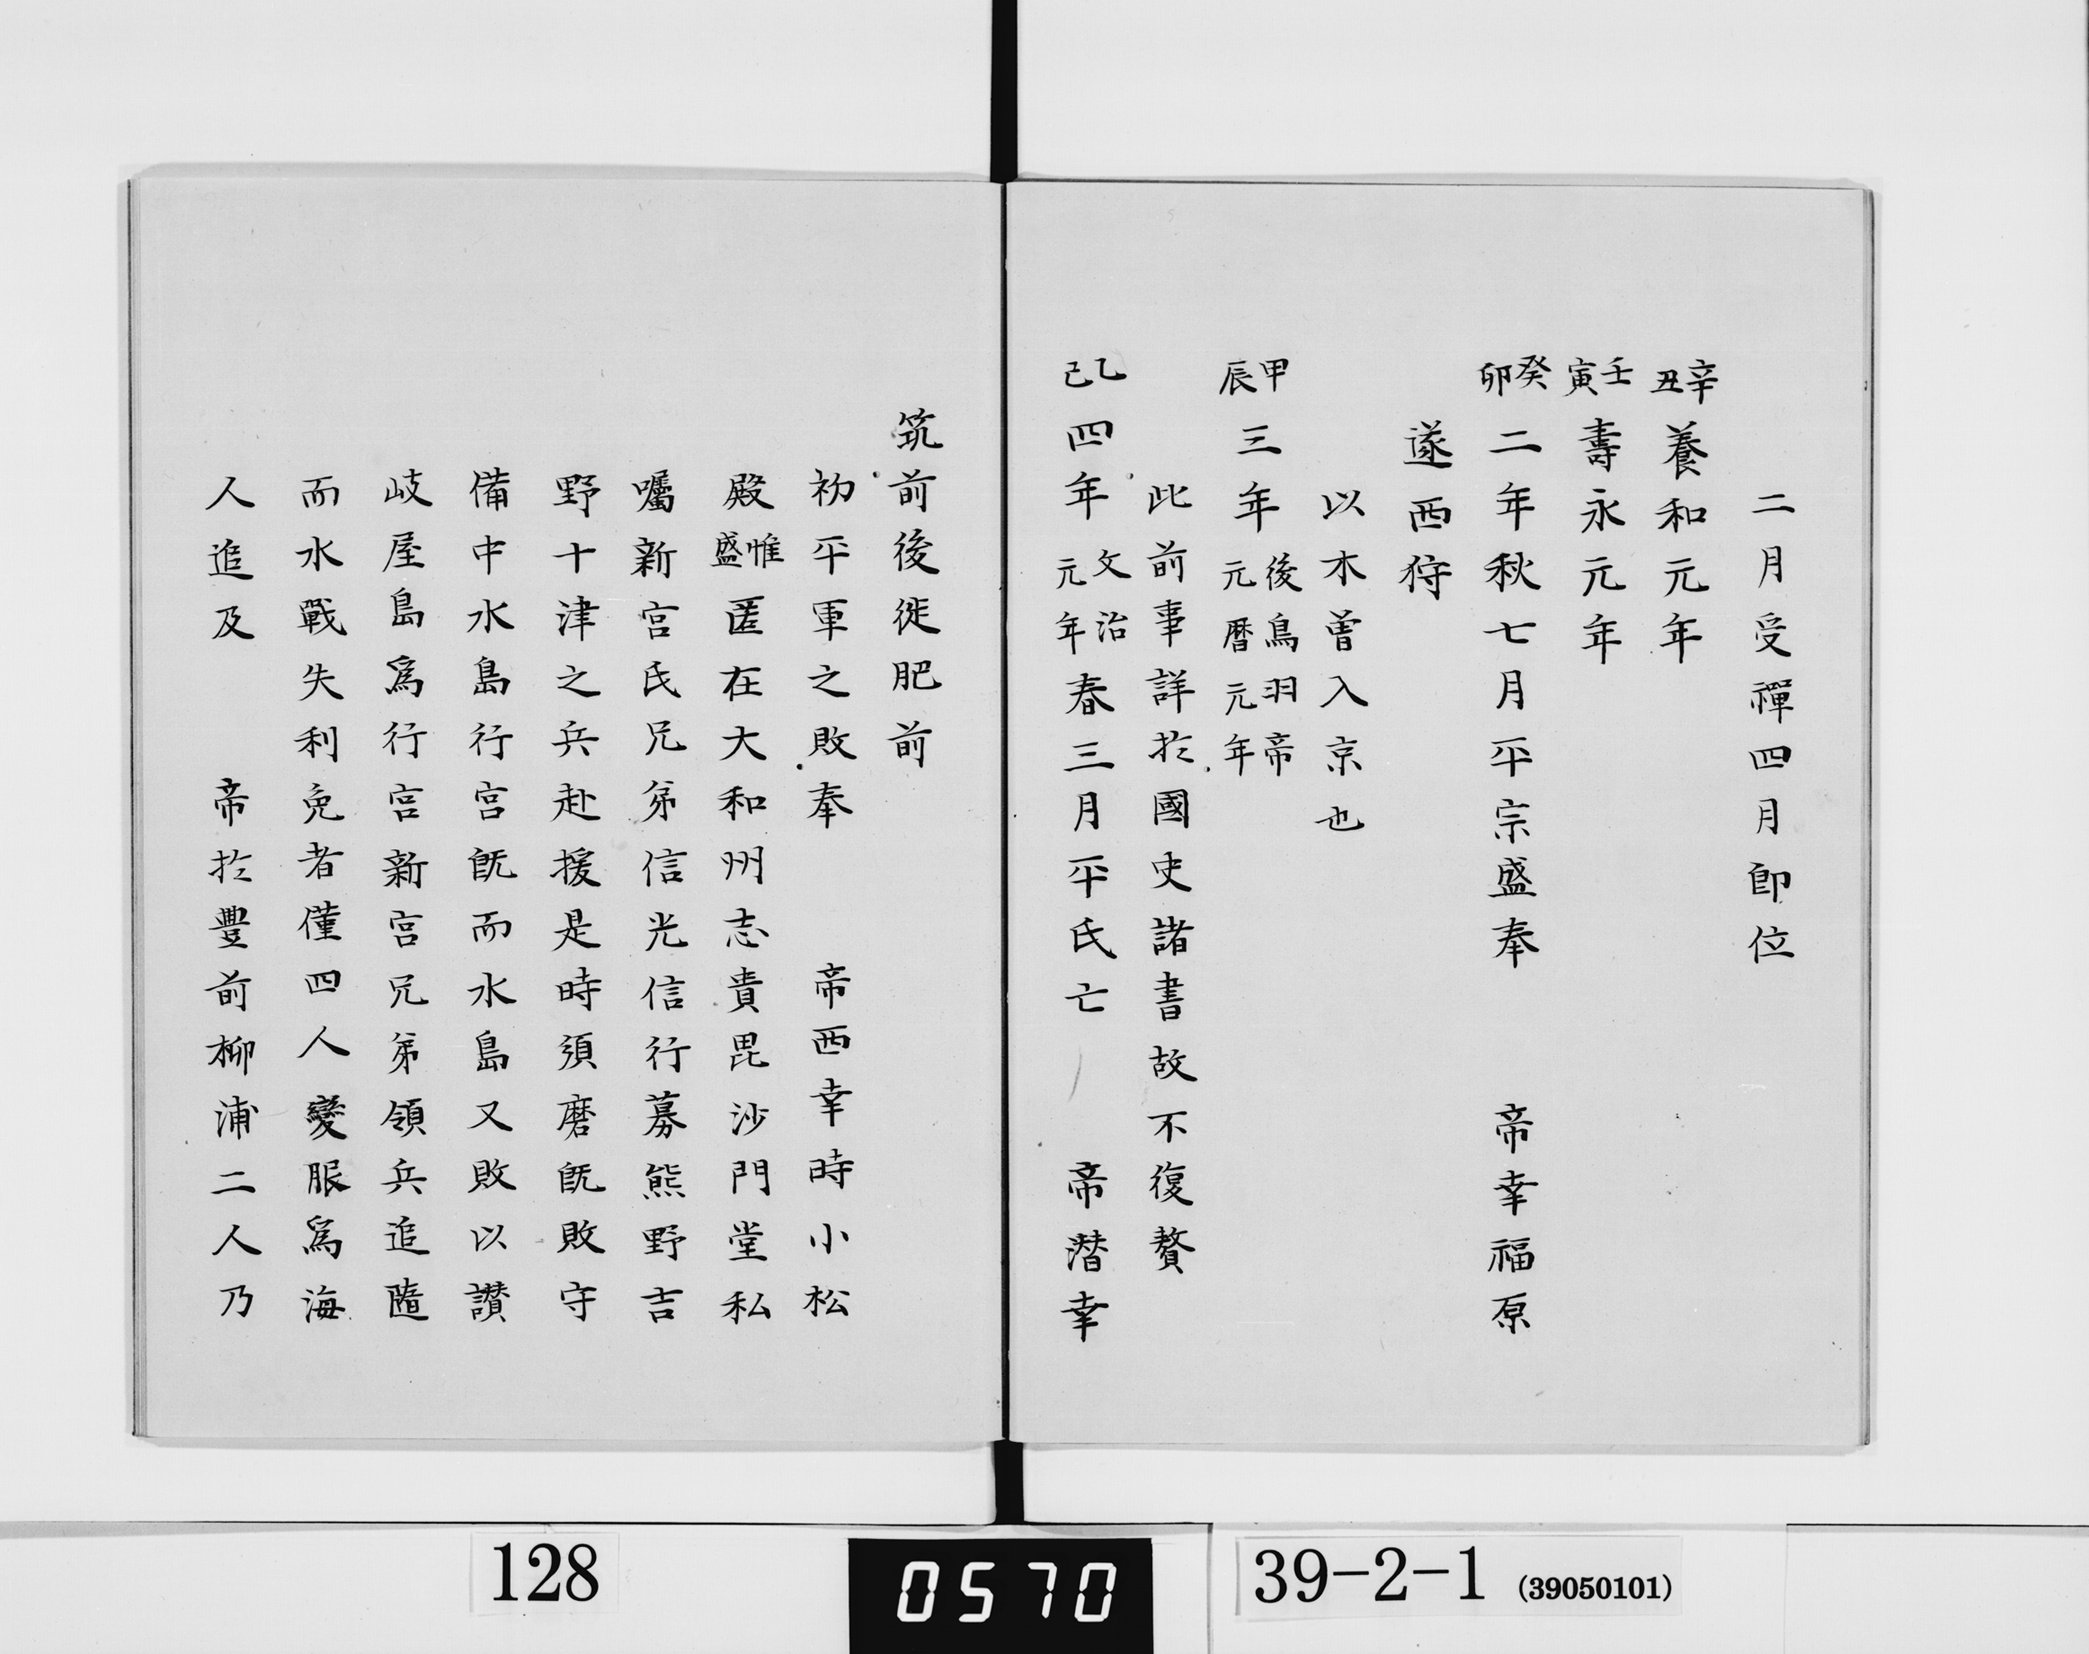 二月受禪四月即位
辛丑養和元年
壬寅壽永元年
癸卯二年秋七月平宗盛奉　帝幸福原
遂西狩
以木曽入京也
甲辰三年後鳥羽帝元暦元年
此前事詳於國史諸書故不復贅
乙己四年文治元年春三月平氏亡　帝潜幸
筑前後徙肥前
初平軍之敗奉　帝西幸時小松
殿惟盛匿在大和州志貴毘沙門堂私
囑新宮氏兄弟信光信行募熊野吉
野十津之兵赴援是時須磨既敗守
備中水島行宮既而水島又敗以讃
岐屋島爲行宮新宮兄弟領兵追隨
而水戰失利免者僅四人變服爲海
人追及　帝於豊前柳浦二人乃
128
0570
39-2-1 (39050101)